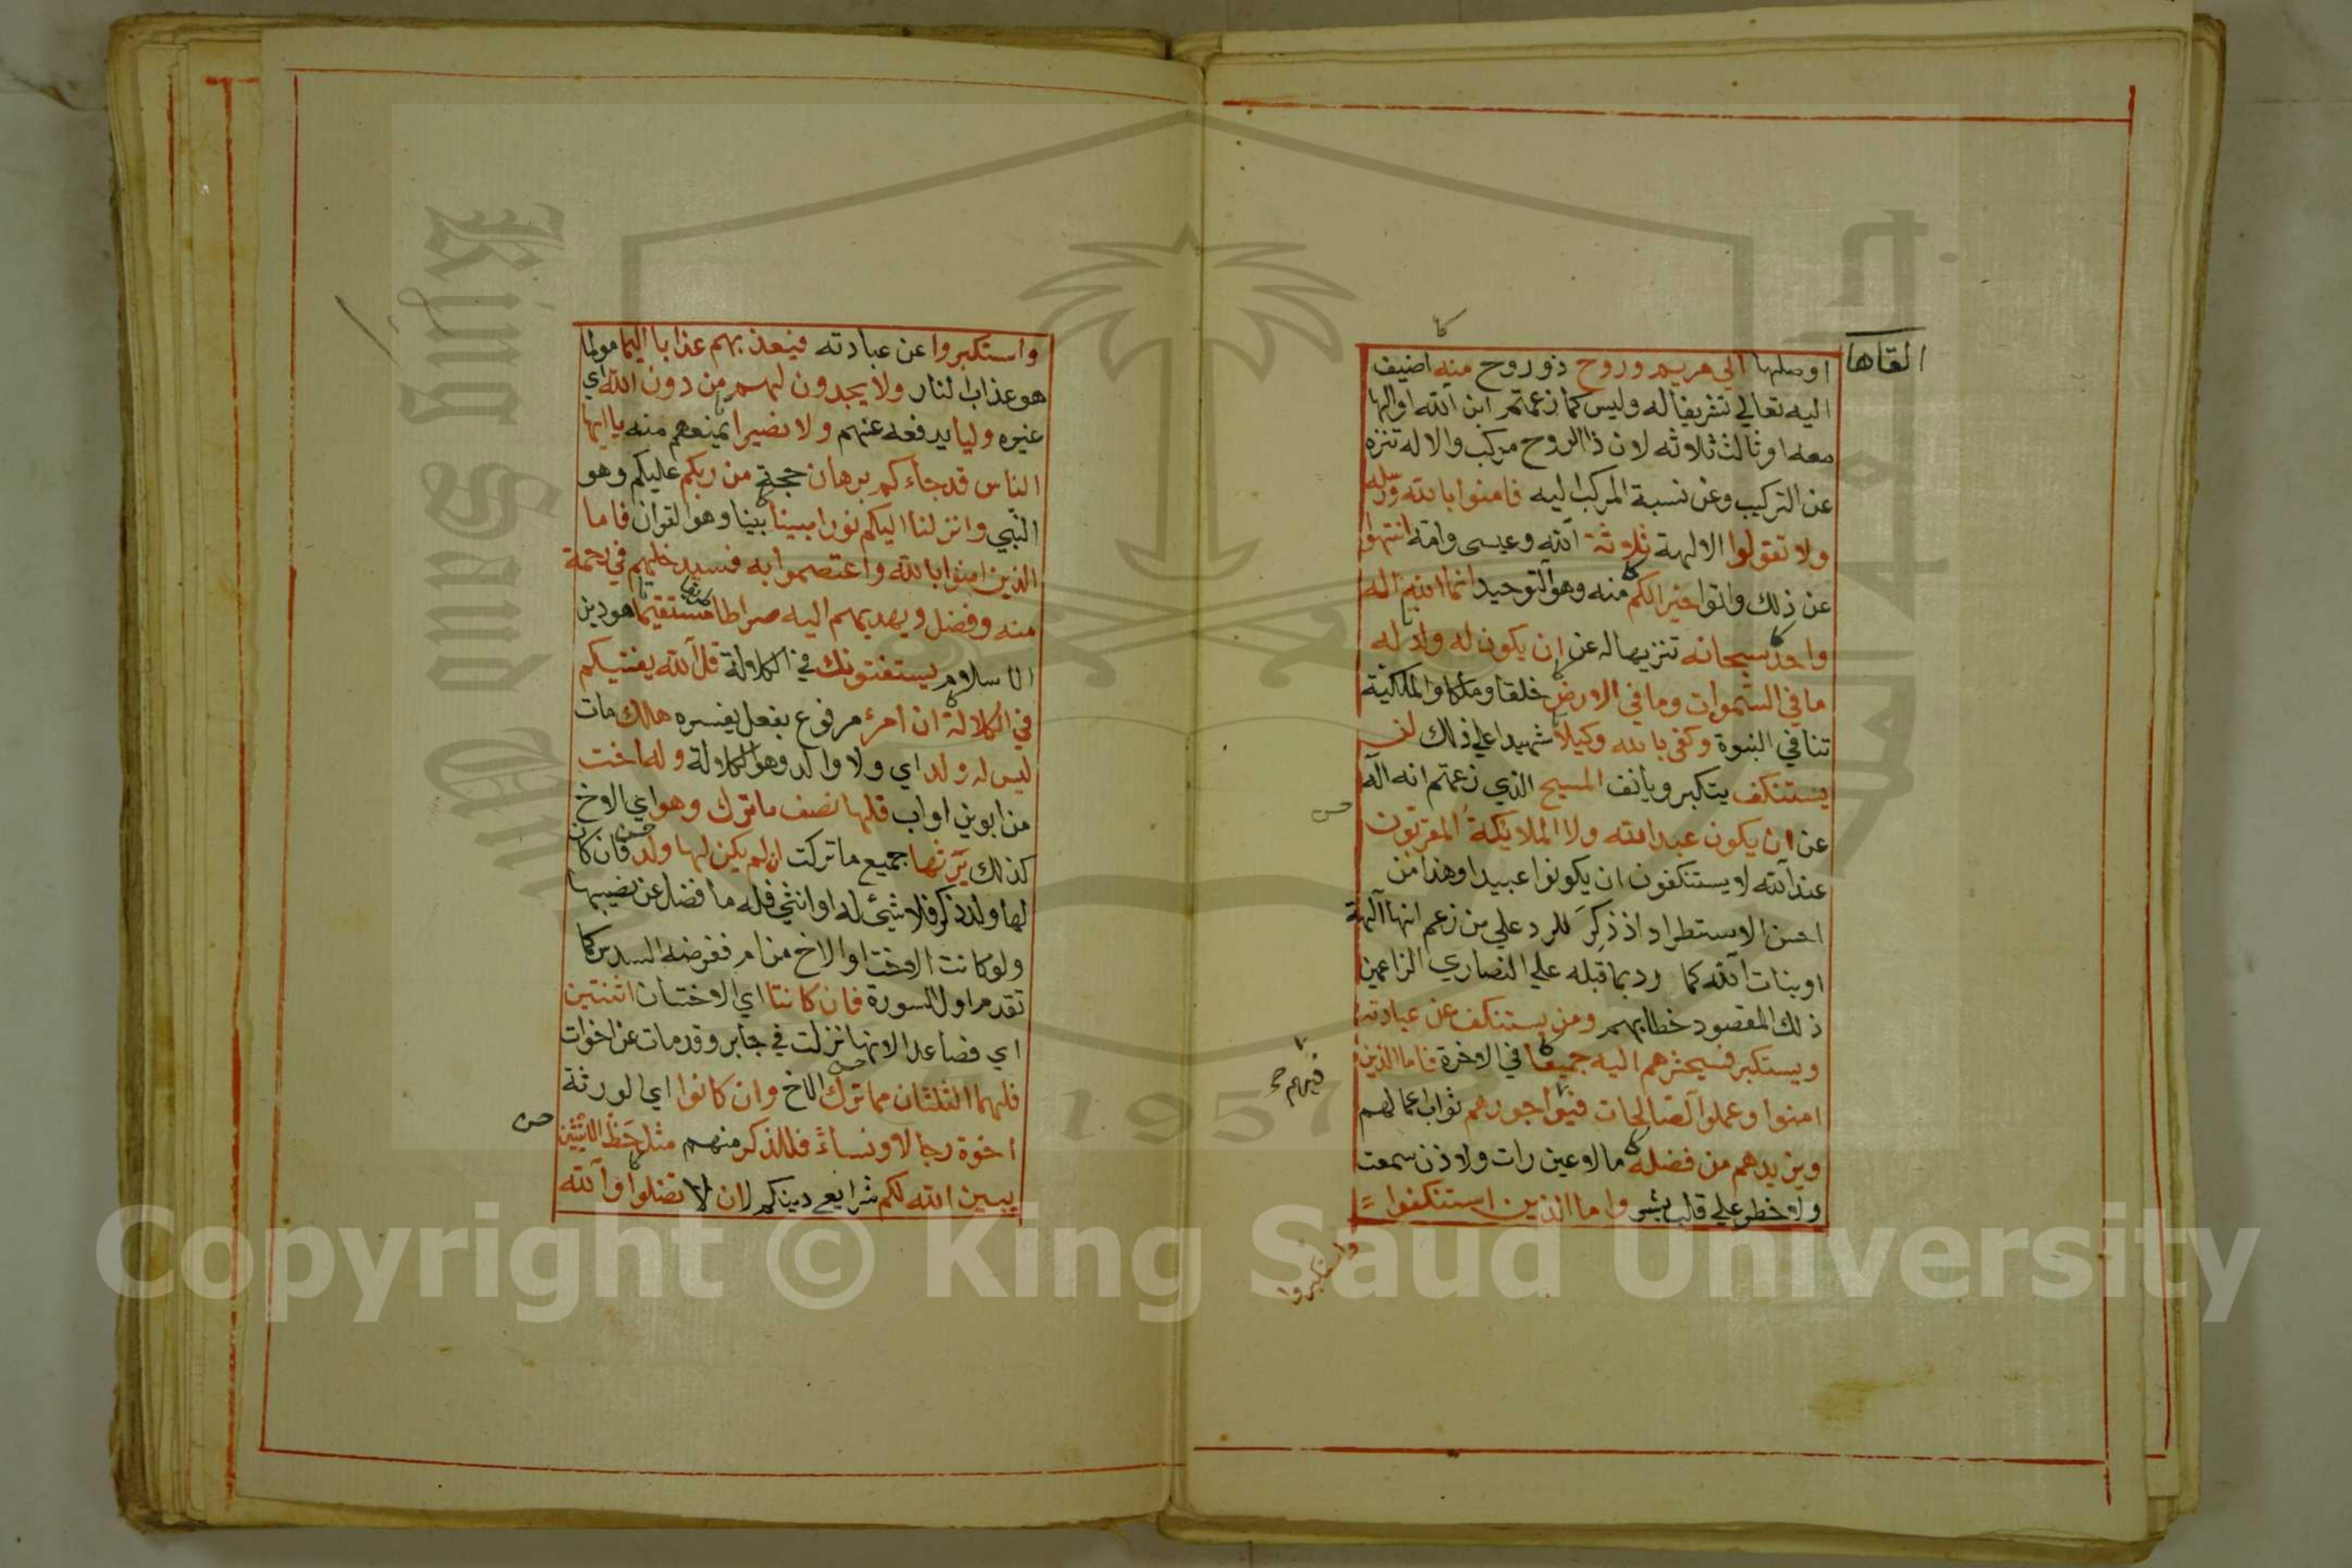 القاها
اوصلها الي مريم وروح ذو روح منه اضيف
اليه تعالي تشريفا له وليس كما زعمتم ابن الله او الها
معه او ثالث ثلاثه لان ذا الروح مركب والاله تنزه
عن التركيب وعن نسبة المركب اليه فامنوا بالله ورسله
ولا تقولوا الالهة ثلاثة الله وعيسى وامه انتهوا
عن ذلك واتوا خيرا لكم منه وهو التوحيد انما الله اله
واحد سبحانه تنزيها له عن ان يكون له ولد له
ما في السموات وما في الارض خلقا وملكا والملكية
تنافي النبوة وكفى بالله وكيلا شهيدا علي ذلك لن
يستنكف يتكبر ويانف المسيح الذي زعمتم انه اله
عن ان يكون عبدا لله ولا الملايكة المقربون
عند الله لا يستنكفون ان يكونوا عبيدا وهذا من
احسن الاستطراد اذ ذكر للرد علي من زعم انها آلهة
او بنات الله كما رد بما قبله علي النصاري الزاعمين
ذلك المقصود خطابهم ومن يستنكف عن عبادته
ويستكبر فسيحشرهم اليه جميعا في الاخرة فاما الذين
امنوا وعملوا الصالحات فيوفيهم اجورهم ثواب اعمالهم
ويزيدهم من فضله ما لا عين رات ولا اذن سمعت
ولا خطر علي قلب بشر واما الذين استنكفوا
واستكبروا
واستكبروا عن عبادته فيعذبهم عذابا اليما مولما
هو عذاب النار ولا يجدون لهم من دون الله اي
غيره وليا يدفعه عنهم ولا نصيرا يمنعهم منه يا ايها
الناس قد جاءكم برهان حجة من ربكم عليكم وهو
النبي وانزلنا اليكم نورا مبينا بينا وهو القران فاما
الذين امنوا بالله واعتصموا به فسيدخلهم في رحمة
منه وفضل ويهديهم اليه صراطا مستقيما هو دين
الاسلام يستفتونك في الكلالة قل الله يفتيكم
في الكلالة ان امرؤ مرفوع بفعل يفسره هلك مات
ليس له ولد اي ولا والد وهو الكلالة وله اخت
من ابوين او اب فلها نصف ما ترك وهو اي الاخ
كذلك يرثها جميع ما تركت ان لم يكن لها ولد فان كان
لها ولد ذكر فلا شيء له او انثي فله ما فضل عن نصيبها
ولو كانت الاخت او الاخ من ام ففرضه السدس كما
تقدم اول السورة فان كانتا اي الاختان اثنتين
اي فصاعدا لانها نزلت في جابر وقد مات عن اخوات
فلهما الثلثان مما ترك الاخ وان كانوا اي الورثة
اخوة رجالا ونساء فللذكر منهم مثل حظ الانثيين
يبين الله لكم شرايع دينكم لان لا تضلوا والله
Copyright © King Saud University
King Saud University
1957